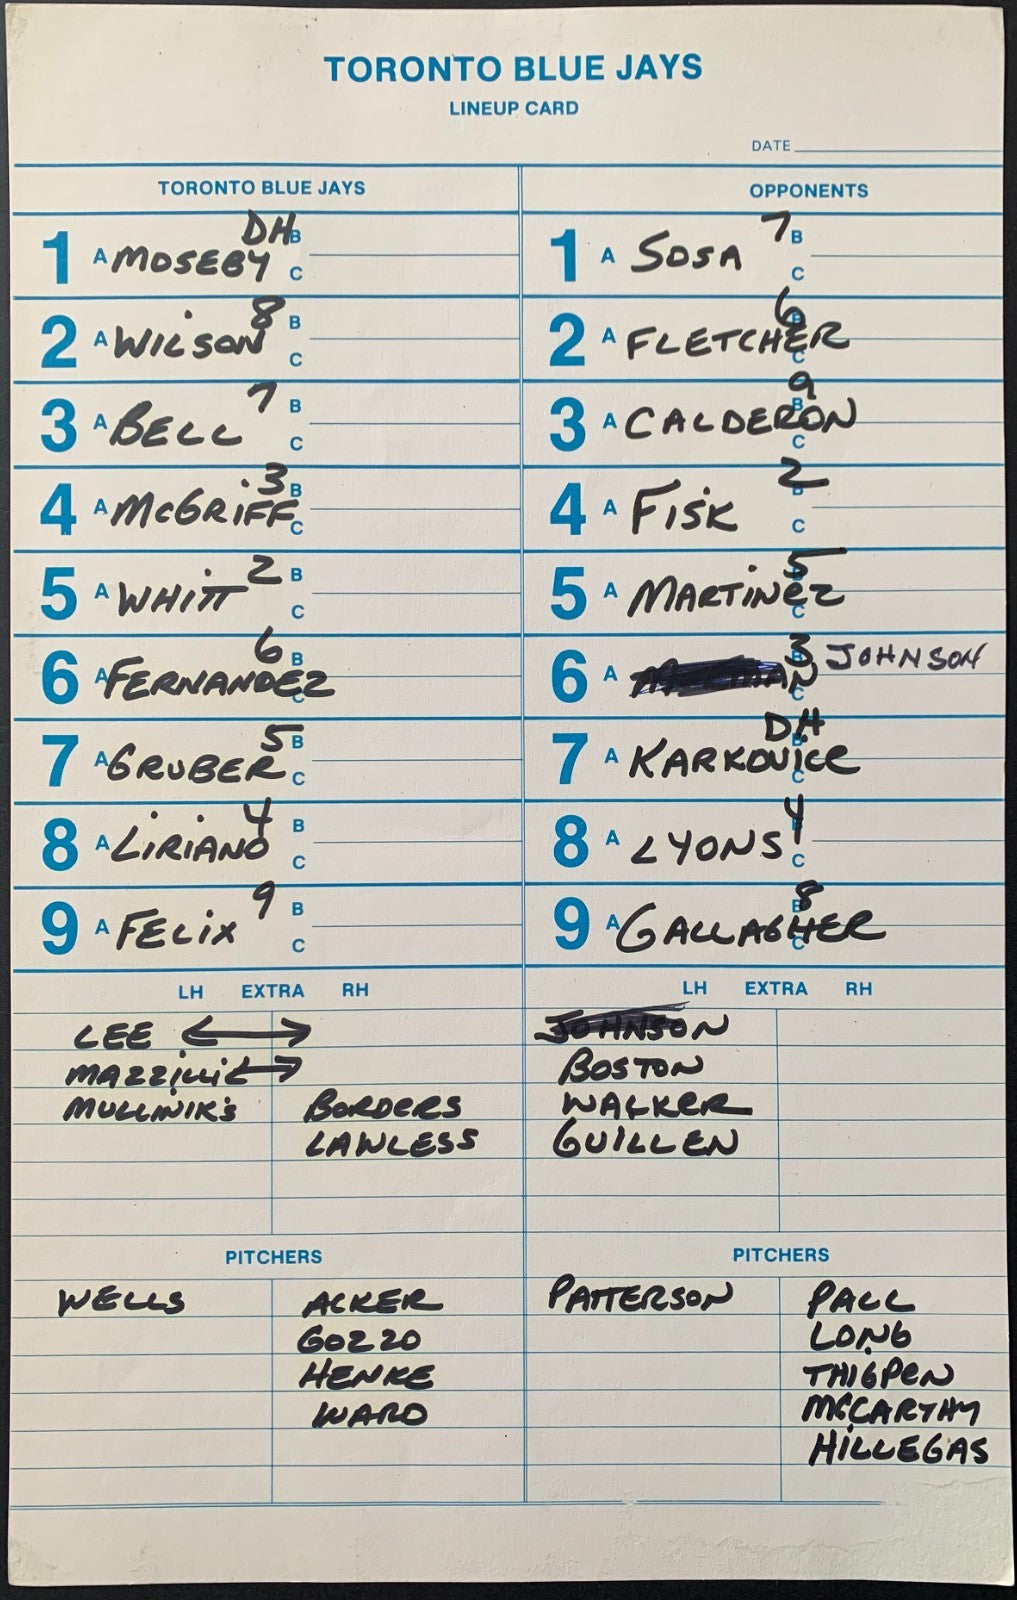 TORONTO BLUE JAYS
LINEUP CARD
DATE
TORONTO BLUE JAYS
1 A MOSEBY DH B C
2 A WILSON 8 B C
3 A BELL 7 B C
4 A McGRIFF 3 B C
5 A WHITT 2 B C
6 A FERNANDEZ 6 B C
7 A GRUBER 5 B C
8 A LIRIANO 4 B C
9 A FELIX 9 B C
LH EXTRA RH
LEE
MAZZILLI
MULLINIK'S BORDERS
LAWLESS
PITCHERS
WELLS ACKER
GOZZO
HENKE
WARD
OPPONENTS
1 A SOSA 7 B C
2 A FLETCHER 6 B C
3 A CALDERON 9 B C
4 A FISK 2 B C
5 A MARTINEZ 5 B C
6 A 3 B C JOHNSON
7 A KARKOVICE DH B C
8 A LYONS 4 B C
9 A GALLAGHER 8 B C
LH EXTRA RH
JOHNSON
BOSTON
WALKER
GUILLEN
PITCHERS
PATTERSON PALL
LONG
THIGPEN
McCARTHY
HILLEGAS